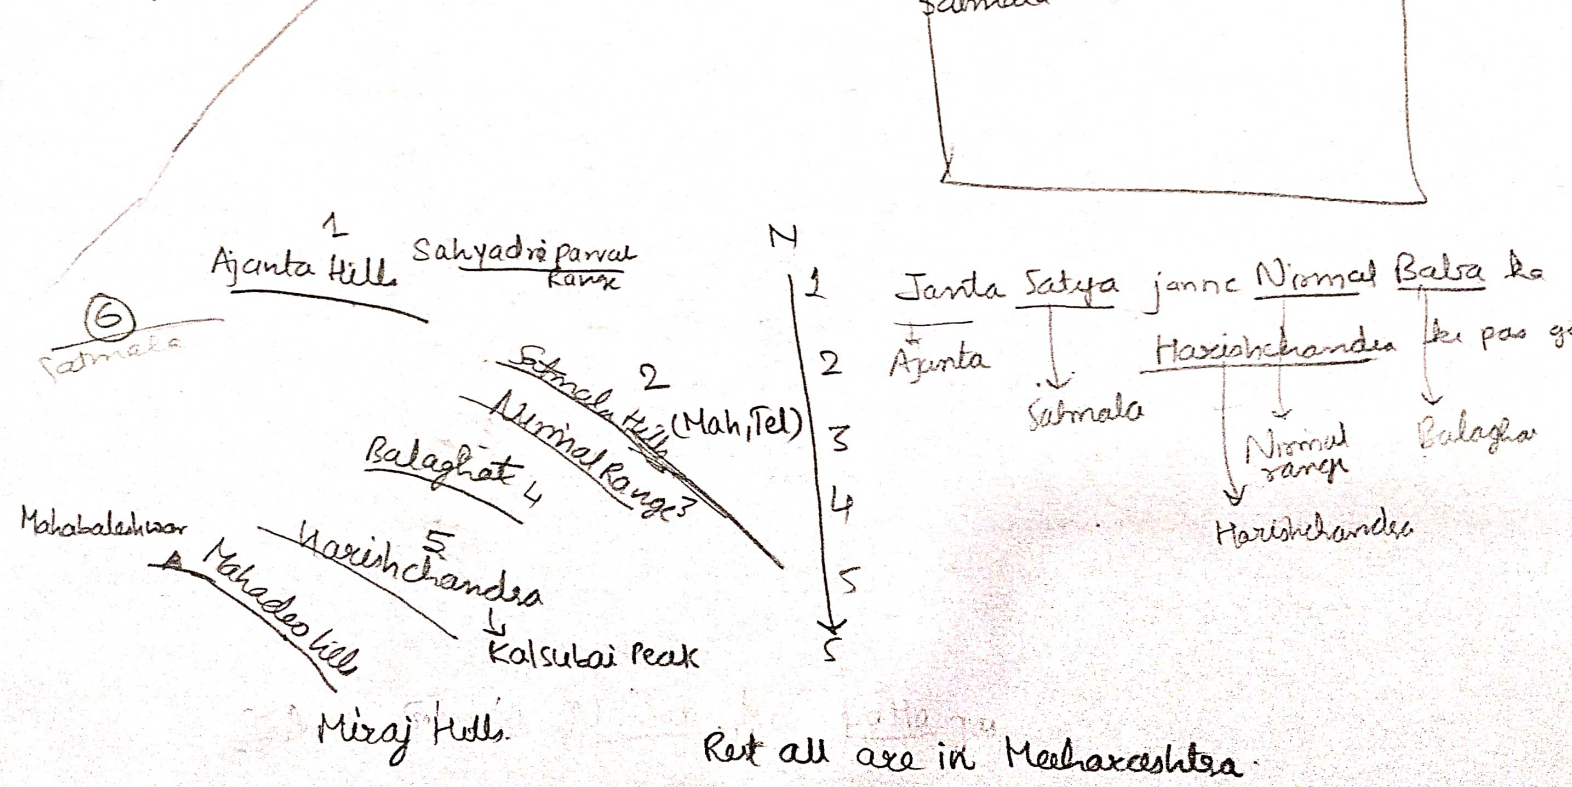 Satmala
1
Ajanta Hills
Sahyadri parvat
Range
6
Satmala
Satmala Hills
2
(Mah, Tel)
Nirmal Range 3
Balaghat 4
Mahabaleshwar
5
Harishchandra
Kalsubai Peak
Mahadeo Hills
Miraj Hills.
N
1
2
3
4
5
S
Janta Satya janne Nirmal Baba ke
Harishchandra ke pas
Ajanta
Satmala
Nirmal
range
Balagha
Harishchandra
Rest all are in Maharashtra.